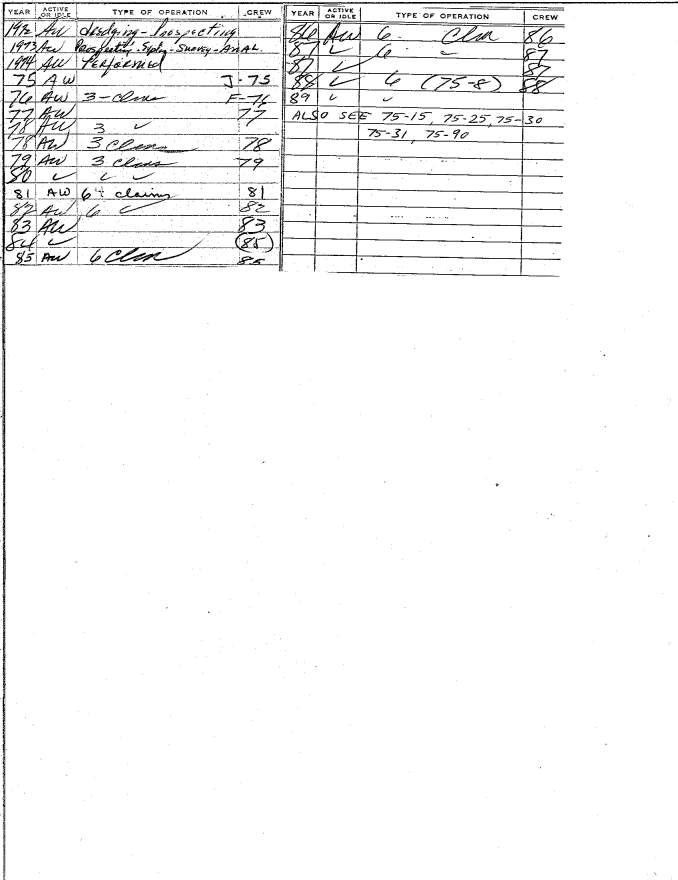 YEAR ACTIVE OR IDLE TYPE OF OPERATION CREW
1972 AW dredging - Prospecting
1973 AW Prospecting - Splng - Survey - ANAL.
1974 AW PERFORMED
75 AW J-75
76 AW 3-clms F-76
77 AW 77
78 AW 3 ✓
78 AW 3 Clms 78
79 AW 3 Clms 79
80 ✓ ✓ ✓
81 AW 6 claims 81
82 AW 6 ✓ 82
83 AW 83
84 ✓ (85)
85 AW 6 Clm
YEAR ACTIVE OR IDLE TYPE OF OPERATION CREW
86 AW 6 - Clm 86
87 ✓ 6 ✓ 87
87 ✓ 87
88 ✓ 6 (75-8) 88
89 ✓ ✓
ALSO SEE 75-15, 75-25, 75-30
75-31, 75-90